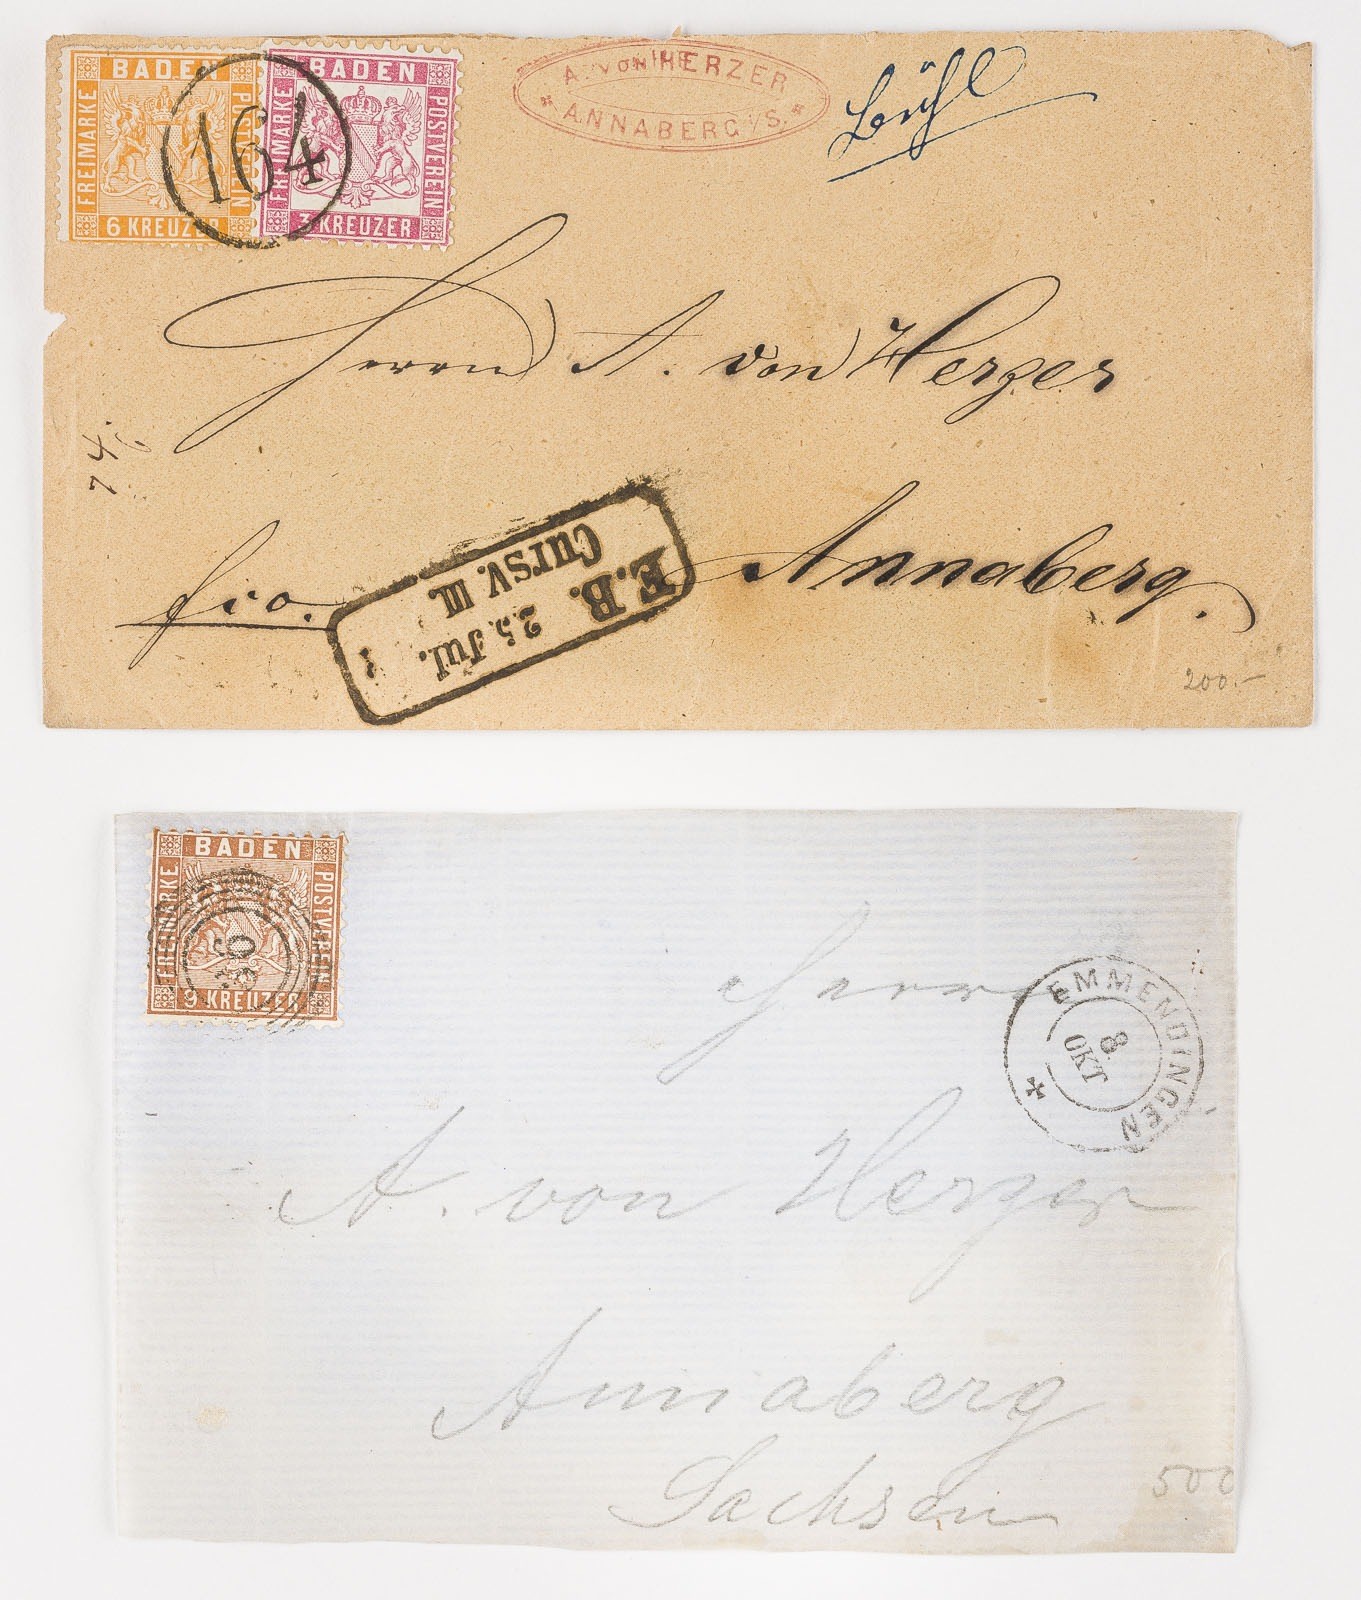 BADEN
FREIMARKE
POSTVEREIN
6 KREUZER
BADEN
FREIMARKE
POSTVEREIN
3 KREUZER
164
A. VON HERZER
* ANNABERG I/S. *
Bühl
Herrn A. von Herzer
74
fco. Annaberg.
E.B.
25. Jul.
CursV. III.
200.–
BADEN
FREIMARKE
POSTVEREIN
9 KREUZER
EMMENDINGEN
8.
OKT
Herrn
A. von Herzer
Annaberg
Sachsen
500